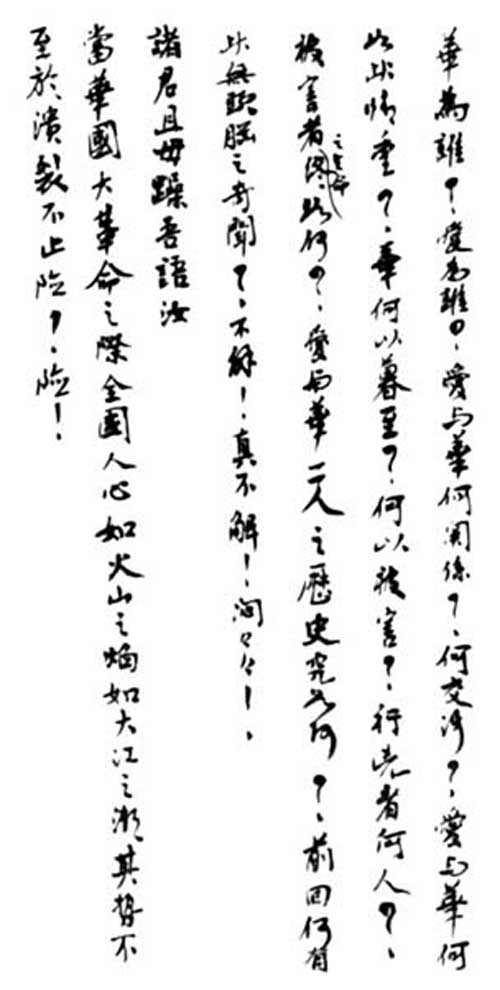 華為誰？愛為誰？愛与華何関係？何交涉？愛与華何
如此情重？華何以暮至？何以被害？行兇者何人？
被害者終之生命如何？愛与華二人之歷史究如何？前回何有
此無頭腦之奇聞？不解！真不解！悶々々！
諸君且毋躁吾語汝
當華國大革命之際全國人心如火山之焰如大江之潮其勢不
至於潰製不止險？險！